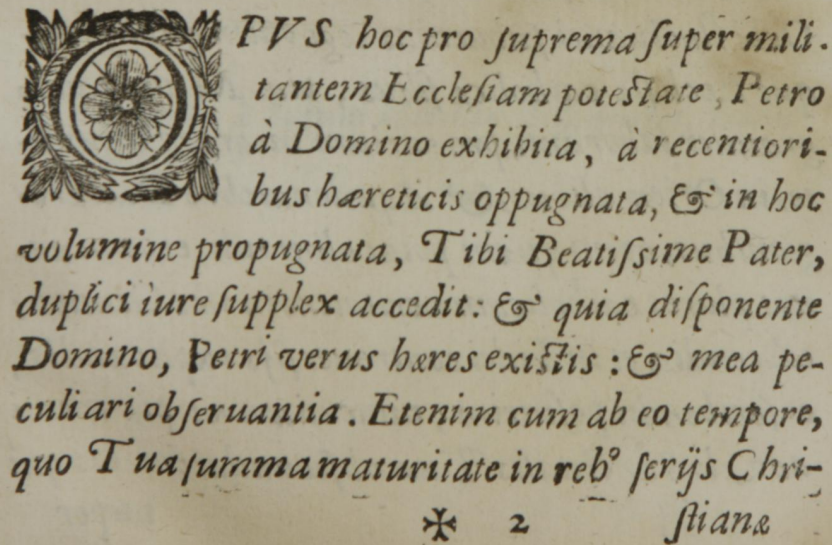 OPVS hoc pro ſuprema ſuper mili-
tantem Eccleſiam poteſtate, Petro
à Domino exhibita, à recentiori-
bus hæreticis oppugnata, & in hoc
volumine propugnata, Tibi Beatiſsime Pater,
duplici iure ſupplex accedit: & quia diſponente
Domino, Petri verus hæres exiſtis: & mea pe-
culiari obſeruantia. Etenim cum ab eo tempore,
quo Tua ſumma maturitate in rebꝰ ſerijs Chri-
✠ 2 ſtianæ